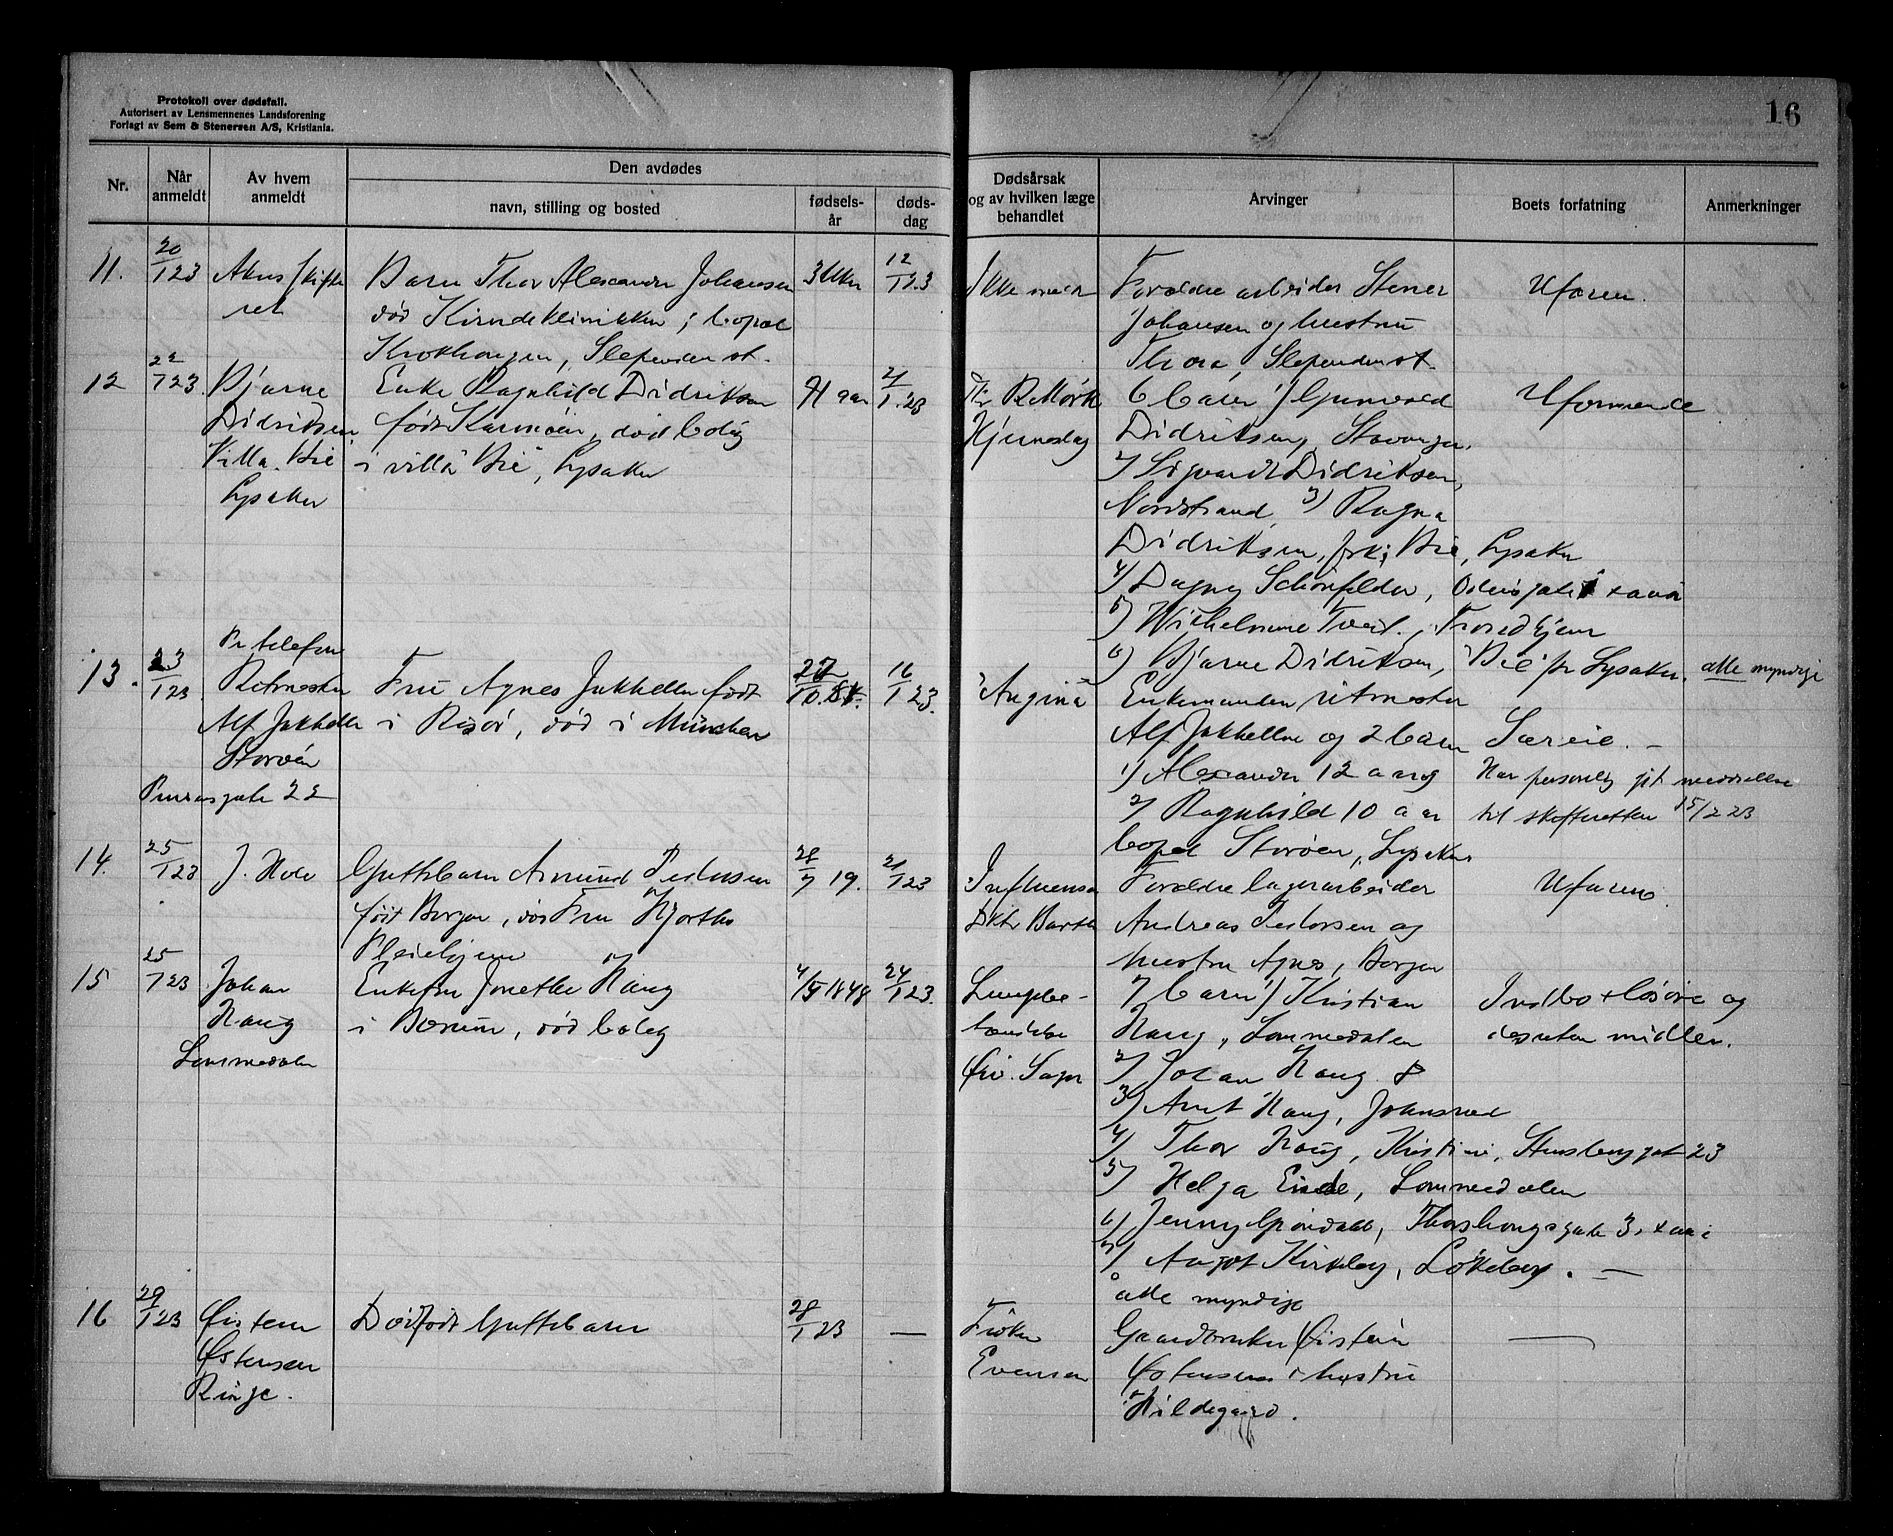 Protokoll over dødsfall.
Autorisert av Lensmennenes Landsforening
Forlagt av Sem & Stenersen A/S, Kristiania.
16
Nr.
Når anmeldt
Av hvem anmeldt
Den avdødes
navn, stilling og bosted
fødselsår
dødsdag
Dødsårsak og av hvilken læge behandlet
Arvinger
Boets forfatning
Anmerkninger
11.
20/1 23
Akers skifte
ret
Barn Thor Alexander Johansen
død Kvindeklinikken; bopæl
Slependen st.
3 Uker
12/1 23
Ikke
Forældre arbeider Stener
Johansen og hustru
Thora, Slependen st.
Uformu.
12
22/1 23
Bjarne
Didriksen
Villa "Bie"
Lysaker
Enke Ragnhild Didriksen
født Karmøen, død bolig
i villa "Bie", Lysaker
71 aar
21/1 23
Dr R. Mørk
Hjerneslag
6 barn 1) Gunvald
Didriksen, Stavanger.
2) Sigvardt Didriksen,
Nordstrand 3) Ragna
Didriksen, frk; Bie, Lysaker
4) Dagny Schönfelder, Odinsgate
5) Wilhelmine Tveit, Trondhjem
6) Bjarne Didriksen, "Bie" pr Lysaker. alle myndige
Uformuende
13.
23/1 23
Pr telefon
Ritmester
Alf Jukhella
Storøen
gate 22
Fru Agnes Jakhelln født
i Risør, død i München
27/10.84.
16/1 23.
"Angina"
Enkemanden ritmester
Alf Jakhelln og 2 barn
1) Alexander 12 a. og
2) Ragnhild 10 aar
bopæl Storøen, Lysaker
Særeie. –
Har personlig git meddelelse
til skifteretten 15/2 23
14.
25/1 23
J. Holo
Guttebarn Amund Pedersen
født Bergen, død Fru Hjorths
Pleiehjem
28/7 19.
21/1 23
Influensa
Dktr Barth
Forældre lagerarbeider
Andreas Pedersen og
hustru Agnes, Bergen
Uformu.
15
25/1 23
Johan
Haug
Lommedalen
Enkefru Jonethe Haug
i Bærum, død bolig
4/5 1848
24/1 23.
Lungebe-
tændelse
7 barn 1) Kristian
Haug, Lommedalen
2) Johan Haug
3) Arnt Haug, Johnsrud
4) Thor Haug, Kristia, Stensberggat 23
5) Helga Eide, Lommedalen
6) Jenny Grøndahl, Thorshougsgate 3,
7) Aagot Kirkeby, Løkeberg. –
alle myndige
Indbo + løsøre og
desuten midler.
16
29/1 23
Øistein
Østensen
Ringe.
Dødfødt Guttebarn
28/1 23
—
Frøken
Evensen
Gaardbruker Øistein
Østensen + hustru
Hildegard.
—